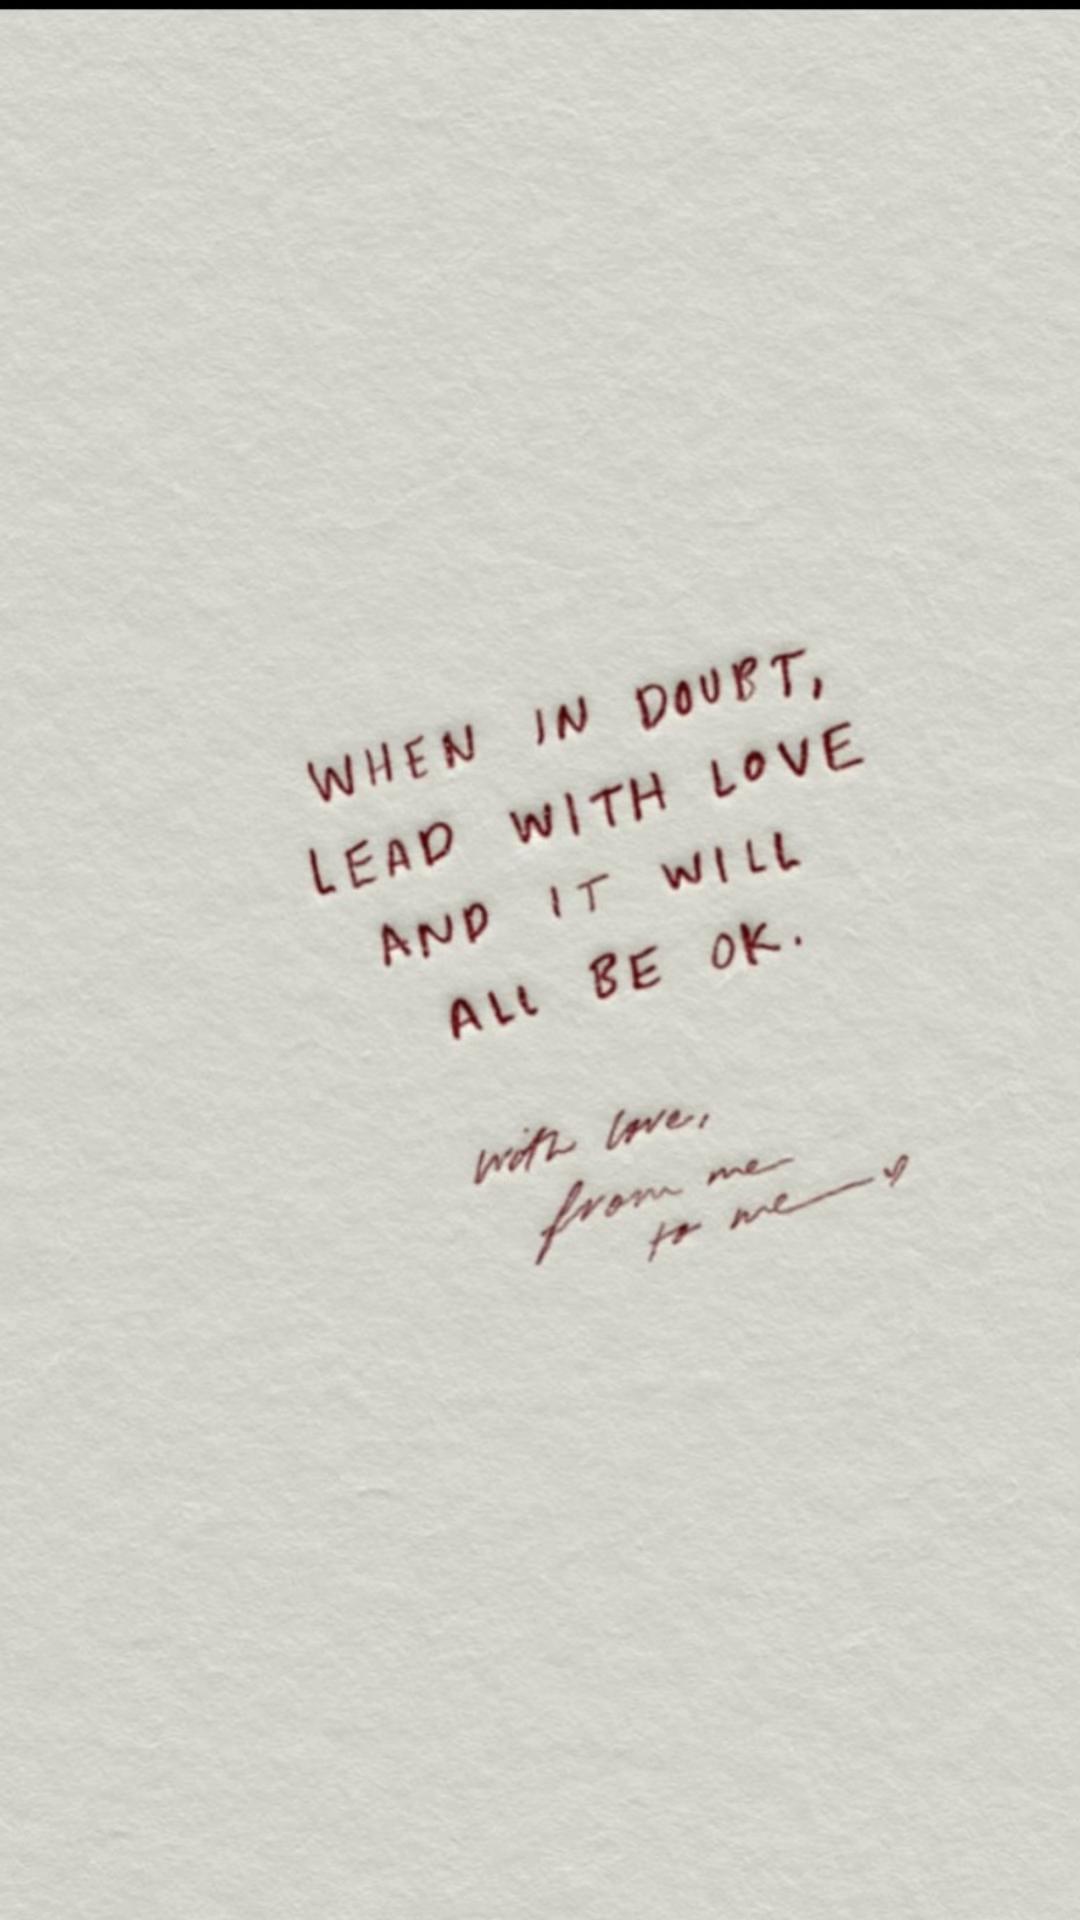 WHEN IN DOUBT,
LEAD WITH LOVE
AND IT WILL
ALL BE OK.
with love,
from me
to me